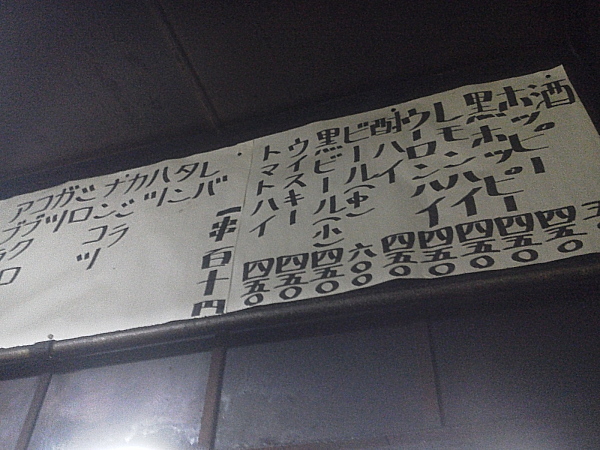 酒
ホッピー 四五〇
黒ホッピー 四五〇
レモンハイ 四五〇
ウーロンハイ 四五〇
酎ハイ 四五〇
ビール(中) 六〇〇
黒ビール(小) 四五〇
ウイスキー 四五〇
トマトハイ 四五〇
一串百十円
レバ
タン
ハツ
カシラ
ナンコツ
シロ
ガツ
コブクロ
アブラ